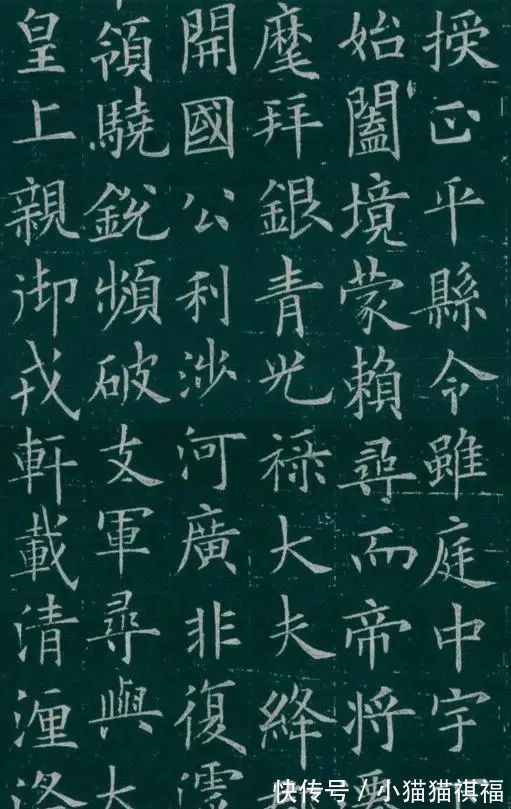 授正平縣令雖庭中宇
始闔境蒙賴尋而帝將
麾拜銀青光祿大夫絳
開國公利涉河廣非復濡
領驍銳頻破支軍尋與大
皇上親御戎軒載清瀍洛
快传号/小猫猫祺福